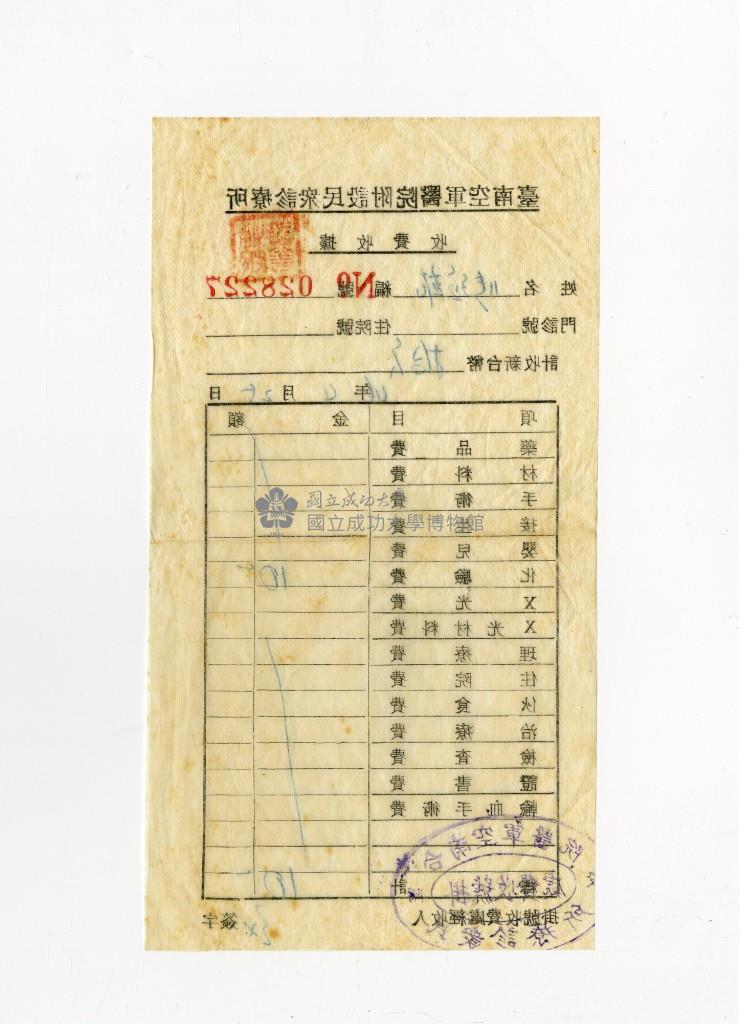 臺南空軍醫院附設民眾診療所
收費收據
姓名 編號 № 028227
門診號 住院號
計收新台幣 拾元
年 月 日
項目 金額
藥品費
材料費
手術費
國立成功大學
國立成功大學博物館
接生費
嬰兒費
化驗費 10
X光費
X光材料費
理療費
住院費
伙食費
治療費
檢查費
證書費
輸血手術費
總計 10
掛號收費處經收人 簽字
掛號收費處